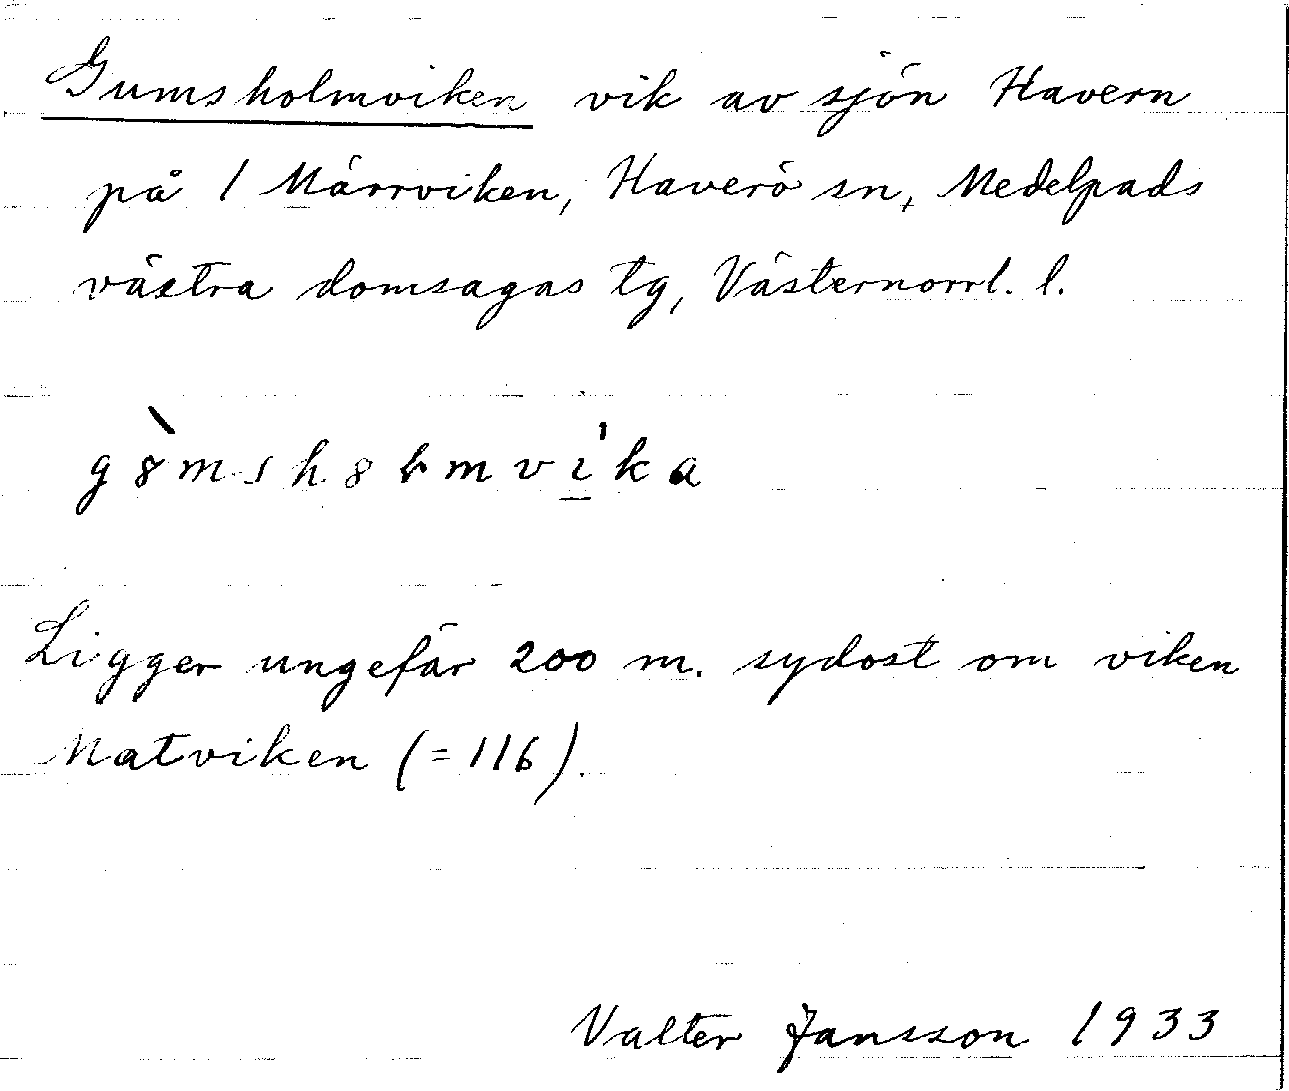 Gumsholmviken vik av sjön Havern
på 1 Märrviken, Haverö sn, Medelpads
västra domsagas tg, Västernorrl. l.
g8̀msh8ɫmvi̲̍ka
Ligger ungefär 200 m. sydost om viken
Matviken (=116).
Valter Jansson 1933